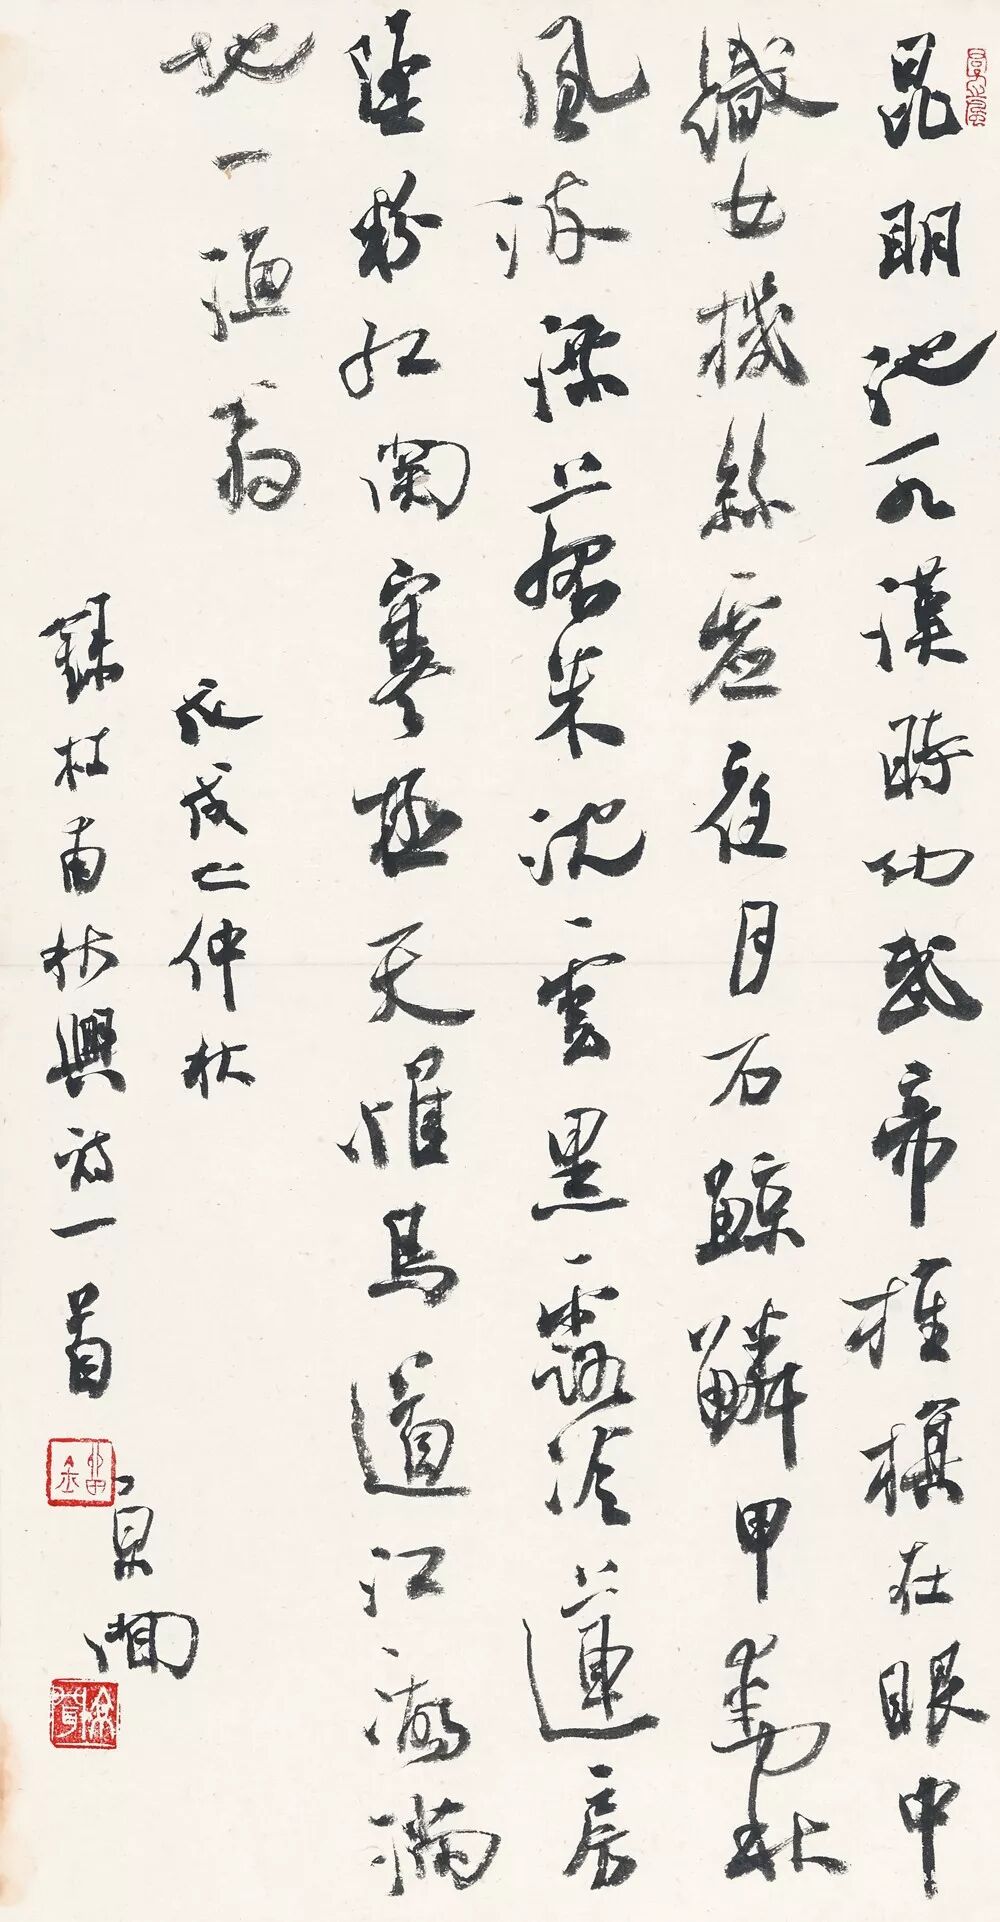 昆明池水漢時功武帝旌旗在眼中
織女機絲虛夜月石鯨鱗甲動秋
風波漂菰米沈雲黑露冷蓮房
墜粉紅關塞極天惟鳥道江湖滿
地一漁翁
戊戌之仲秋
錄杜甫秋興詩一首